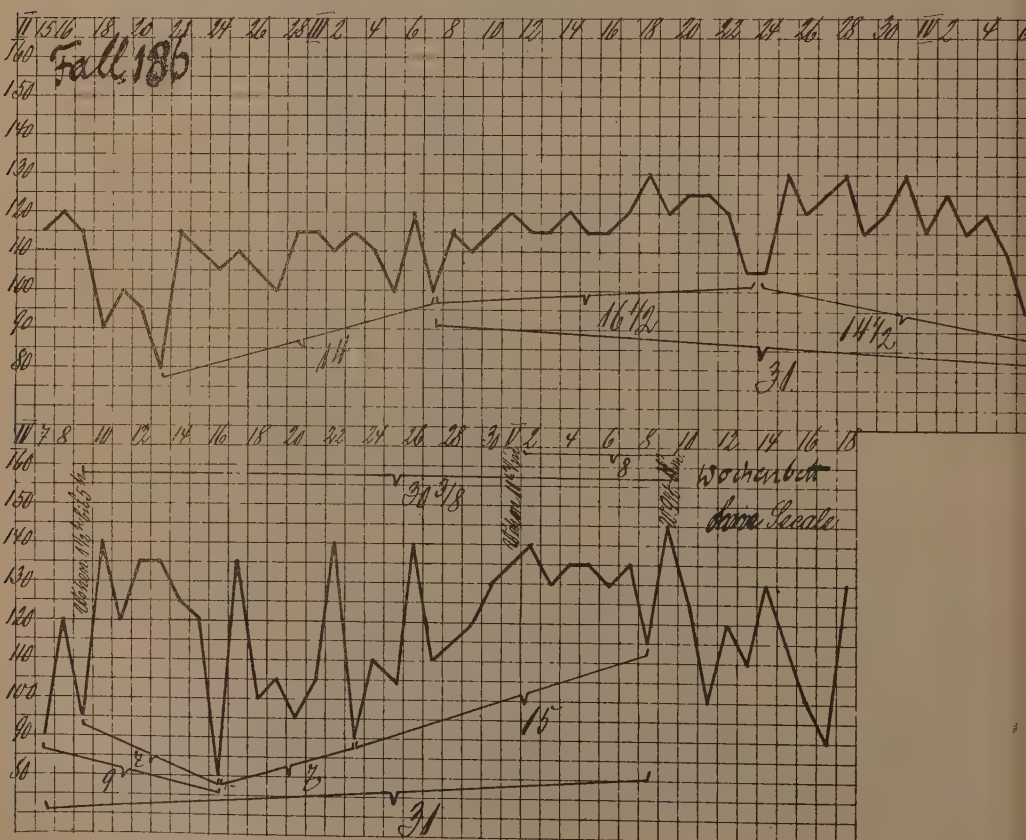 VII 15 16 18 20 21 24 26 28 III 2 4 6 8 10 12 14 16 18 20 22 24 26 28 30 IV 2 4 6
Fall 186
160
150
140
130
120
110
100
90
80
14
16 1/2
14 1/2
31
IV 7 8 10 12 14 16 18 20 22 24 26 28 30 V 2 4 6 8 10 12 14 16 18
160
150
140
130
120
110
100
90
80
30 3/8
8
Wochenbett
ohne Secale
15
9
7
7
31